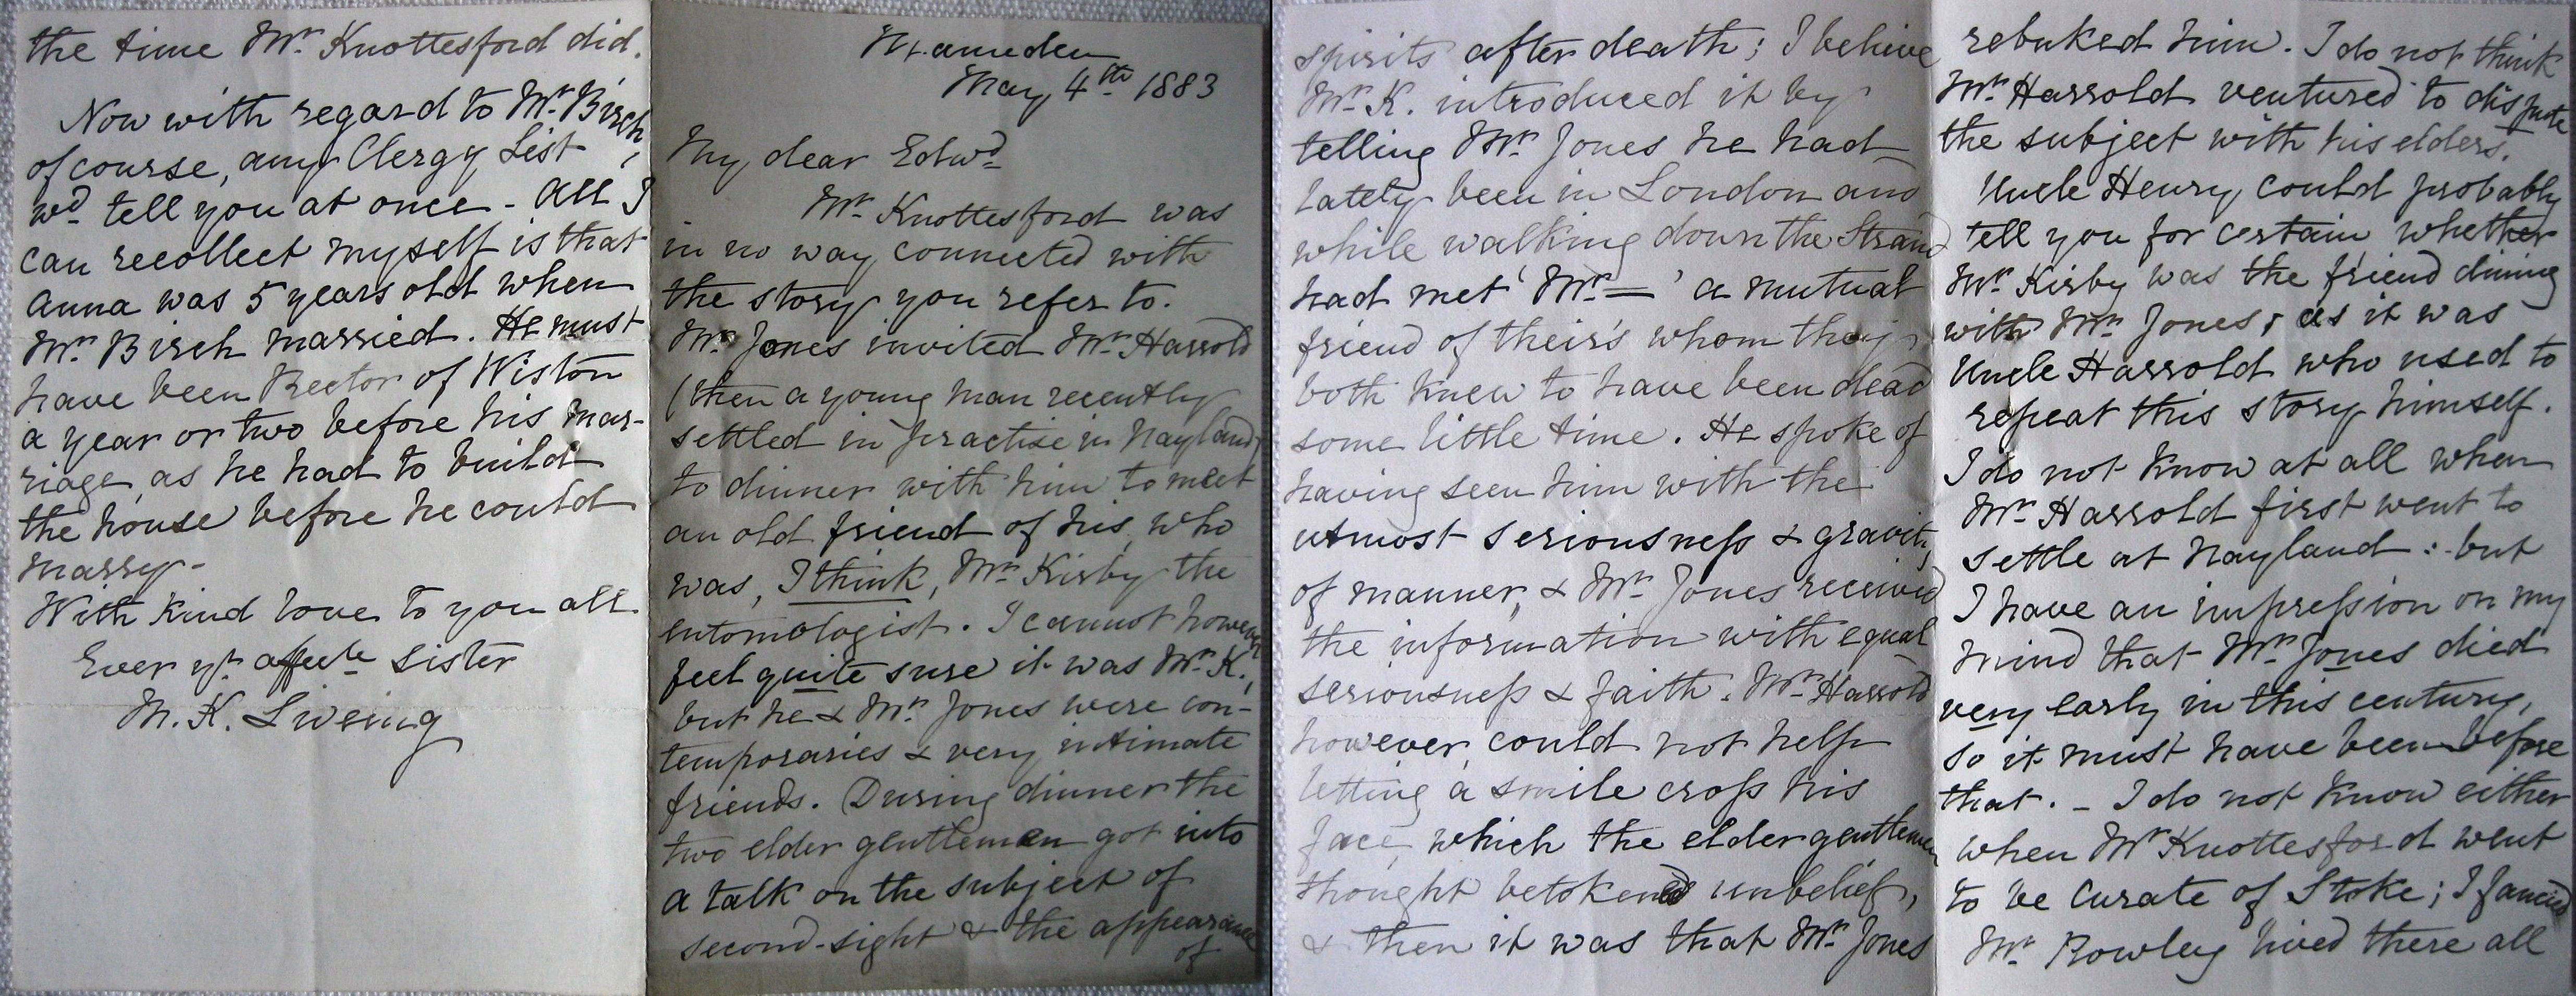 May 4th 1883
My dear Edwd
Mr Knottesford was
in no way connected with
the story you refer to.
Mr Jones invited Mr Harrold
(then a young man recently
settled in practise in Nayland)
to dinner with him to meet
an old friend of his, who
was, I think, Mr Kirby the
entomologist. I cannot however
feel quite sure it was Mr K.,
but he & Mr Jones were con-
temporaries & very intimate
friends. During dinner the
two elder gentlemen got into
a talk on the subject of
second-sight & the appearance
of
spirits after death; I believe
Mr K. introduced it by
telling Mr Jones he had
lately been in London and
while walking down the Strand
had met 'Mr — ' a mutual
friend of their's whom they
both knew to have been dead
some little time. He spoke of
having seen him with the
utmost seriousness & gravity
of manner, & Mr Jones received
the information with equal
seriousness & faith. Mr Harrold
however could not help
letting a smile cross his
face, which the elder gentlemen
thought betokened unbelief,
& then it was that Mr Jones
rebuked him. I do not think
Mr Harrold ventured to dispute
the subject with his elders.
Uncle Henry could probably
tell you for certain whether
Mr Kirby was the friend dining
with Mr Jones, as it was
Uncle Harrold who used to
repeat this story himself.
I do not know at all when
Mr Harrold first went to
settle at Nayland: but
I have an impression on my
mind that Mr Jones died
very early in this century,
so it must have been before
that. - I do not know either
when Mr Knottesford went
to be Curate of Stoke; I fancied
Mr Rowley lived there all
the time Mr Knottesford did.
Now with regard to Mr Birch,
of course, any Clergy List
wd tell you at once - All I
can recollect myself is that
Anna was 5 years old when
Mr Birch married. He must
have been Rector of Wiston
a year or two before his mar-
riage, as he had to build
the house before he could
marry -
With kind love to you all
Ever yr affecte sister
M. K. Liveing